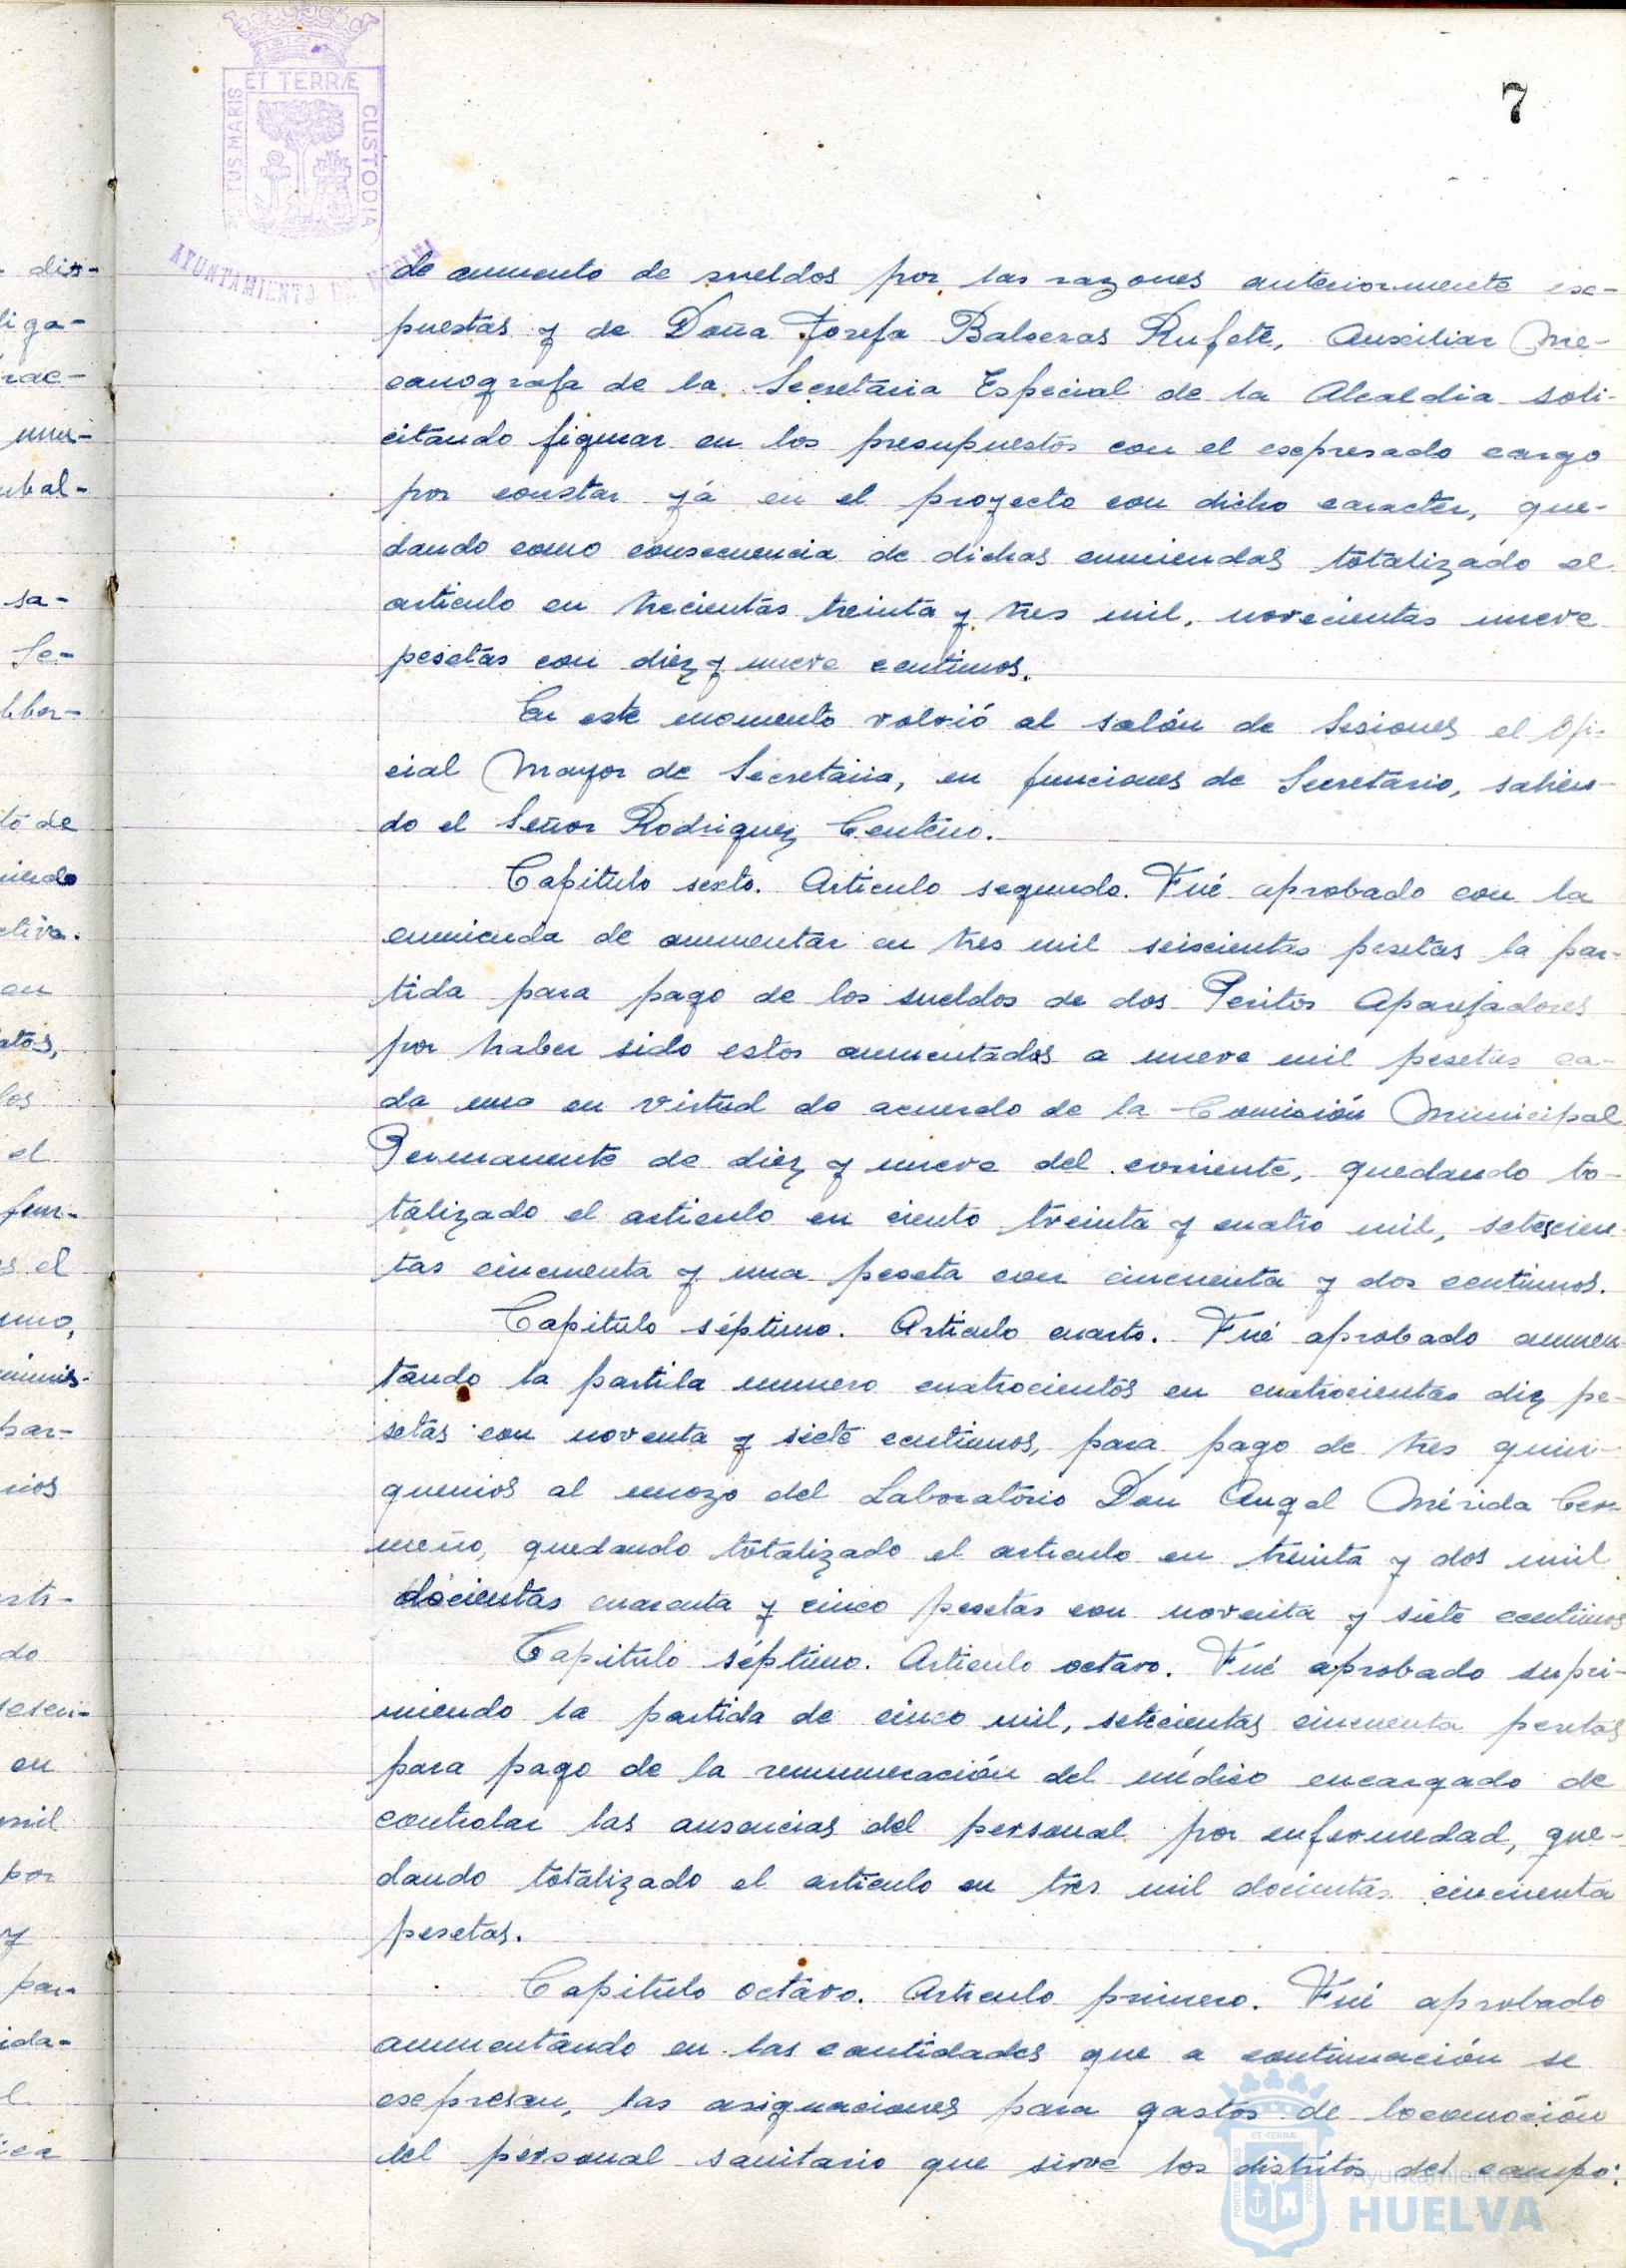 7
ET TERRÆ
TUS MARIS
CUSTODIA
AYUNTAMIENTO DE HUELVA
de aumento de sueldos por las razones anteriormente ex-
puestas y de Doña Josefa Balseras Rufete, Auxiliar Me-
canografa de la Secretaria Especial de la Alcaldia soli-
citando figurar en los presupuestos con el expresado cargo
por constar yá en el proyecto con dicho caracter, que-
dando como consecuencia de dichas enmiendas totalizado el
articulo en trecientas treinta y tres mil, novecientas nueve
pesetas con diez y nueve centimos.
En este momento volvió al salón de Sesiones el Ofi-
cial Mayor de Secretaria, en funciones de Secretario, salien-
do el Señor Rodriguez Centeno.
Capitulo sexto. Articulo segundo. Fué aprobado con la
enmienda de aumentar en tres mil seiscientas pesetas la par-
tida para pago de los sueldos de dos Peritos Aparejadores
por haber sido estos aumentados a nueve mil pesetas ca-
da uno en virtud de acuerdo de la Comisión Municipal
Permanente de diez y nueve del corriente, quedando to-
talizado el articulo en ciento treinta y cuatro mil, setescien-
tas cincuenta y una peseta con cincuenta y dos centimos.
Capitulo séptimo. Articulo cuarto. Fué aprobado aumen-
tando la partila numero cuatrocientos en cuatrocientas diez pe-
setas con noventa y siete centimos, para pago de tres quin-
quenios al mozo del Laboratorio Don Angel Mérida Cer-
meño, quedando totalizado el articulo en treinta y dos mil
docientas cuarenta y cinco pesetas con noventa y siete centimos
Capitulo séptimo. Articulo octavo. Fué aprobado supri-
miendo la partida de cinco mil, setecientas cincuenta pesetas
para pago de la remuneración del médico encargado de
controlar las ausencias del personal por enfermedad, que-
dando totalizado el articulo en tres mil docientas cincuenta
pesetas.
Capitulo octavo. Articulo primero. Fué aprobado
aumentando en las cantidades que a continuación se
expresan, las asignaciones para gastos de locomoción
del personal sanitario que sirve los distritos del campo:
Ayuntamiento de
HUELVA